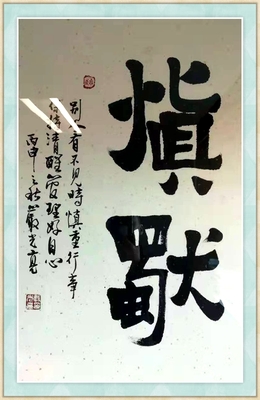 慎獨
别人看不見時慎重行事
保持清醒管理好自心
丙申之秋嚴光亮